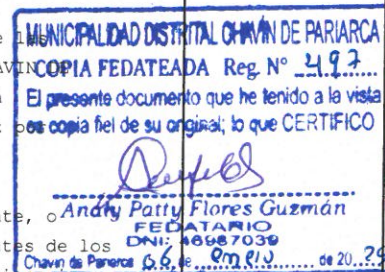 e las
MUNICIPALIDAD DISTRITAL CHAVÍN DE PARIARCA
AVIN DE
COPIA FEDATEADA Reg. N° 497
El presente documento que he tenido a la vista
es copia fiel de su original; lo que CERTIFICO
te, o
Anány Patty Flores Guzmán
FEDATARIO
tes de los
DNI: 46987039
Chavín de Pariarca 06 de enero de 20